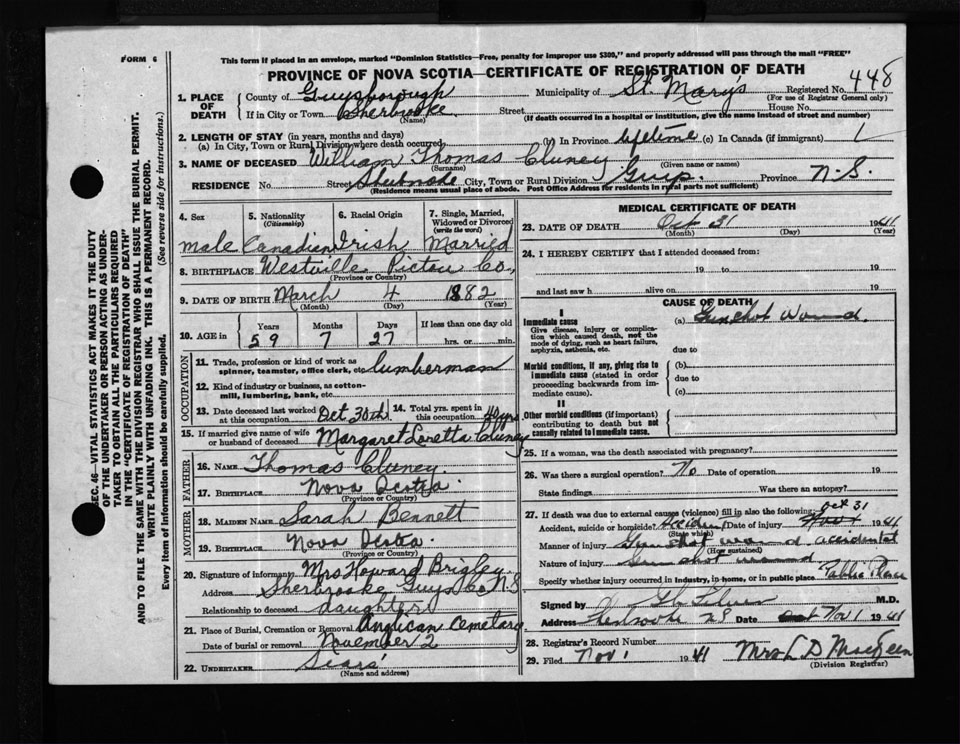 FORM 6
This form if placed in an envelope, marked "Dominion Statistics—Free, penalty for improper use $300," and properly addressed will pass through the mail "FREE"
PROVINCE OF NOVA SCOTIA—CERTIFICATE OF REGISTRATION OF DEATH
448
1. PLACE OF DEATH County of Guysborough Municipality of St. Mary's Registered No.
(For use of Registrar General only)
If in City or Town Sherbrooke. Street House No.
(Name) (If death occurred in a hospital or institution, give the name instead of street and number)
2. LENGTH OF STAY (in years, months and days)
(a) In City, Town or Rural Division where death occurred (b) In Province lifetime (c) In Canada (if immigrant)
3. NAME OF DECEASED William Thomas Cluney
(Surname) (Given name or names)
RESIDENCE No. Street City, Town or Rural Division Guys. Province N.S.
(Residence means usual place of abode. Post Office Address for residents in rural parts not sufficient)
4. Sex 5. Nationality (Citizenship) 6. Racial Origin 7. Single, Married, Widowed or Divorced (write the word)
male Canadian Irish Married
8. BIRTHPLACE Westville Pictou Co.,
(Province or Country)
9. DATE OF BIRTH March 4 1882
(Month) (Day) (Year)
10. AGE in Years Months Days If less than one day old
59 7 27 hrs. or min.
OCCUPATION
11. Trade, profession or kind of work as spinner, teamster, office clerk, etc. lumberman
12. Kind of industry or business, as cotton-mill, lumbering, bank, etc.
13. Date deceased last worked at this occupation Oct 30th 14. Total yrs. spent in this occupation 40 yrs
15. If married give name of wife or husband of deceased Margaret Loretta Cluney
FATHER
16. NAME Thomas Cluney.
17. BIRTHPLACE Nova Scotia.
(Province or Country)
MOTHER
18. MAIDEN NAME Sarah Bennett
19. BIRTHPLACE Nova Scotia.
(Province or Country)
20. Signature of informant Mrs Howard Brigley
Address Sherbrooke Guys Co N.S
Relationship to deceased daughter
21. Place of Burial, Cremation or Removal Anglican Cemetary
Date of burial or removal November 2
22. UNDERTAKER Sears
(Name and address)
MEDICAL CERTIFICATE OF DEATH
23. DATE OF DEATH Oct 31 1941
(Month) (Day) (Year)
24. I HEREBY CERTIFY that I attended deceased from:
19 to 19
and last saw h alive on 19
CAUSE OF DEATH
I
Immediate cause (a) Gunshot Wound.
Give disease, injury or complication which caused death, not the mode of dying, such as heart failure, asphyxia, asthenia, etc.
due to
Morbid conditions, if any, giving rise to immediate cause (stated in order proceeding backwards from immediate cause). (b)
due to
(c)
II
Other morbid conditions (if important) contributing to death but not causally related to immediate cause.
25. If a woman, was the death associated with pregnancy?
26. Was there a surgical operation? No Date of operation 19
State findings Was there an autopsy?
27. If death was due to external causes (violence) fill in also the following:
Oct 31
Accident, suicide or homicide? Accident Date of injury 1941
(State which)
Manner of injury Gun shot wound accidental
(How sustained)
Nature of injury Gunshot wound
Specify whether injury occurred in industry, in home, or in public place Public Place
Signed by M.D.
Address Sherbrooke NS Date Nov 1 1941
28. Registrar's Record Number
29. Filed Nov 1 1941 Mrs L D MacKeen
(Division Registrar)
SEC. 46—VITAL STATISTICS ACT MAKES IT THE DUTY
OF THE UNDERTAKER OR PERSON ACTING AS UNDER-
TAKER TO OBTAIN ALL THE PARTICULARS REQUIRED
IN THE "CERTIFICATE OF REGISTRATION OF DEATH"
AND TO FILE THE SAME WITH THE DIVISION REGISTRAR WHO SHALL ISSUE THE BURIAL PERMIT.
WRITE PLAINLY WITH UNFADING INK. THIS IS A PERMANENT RECORD.
Every item of information should be carefully supplied. (See reverse side for instructions.)